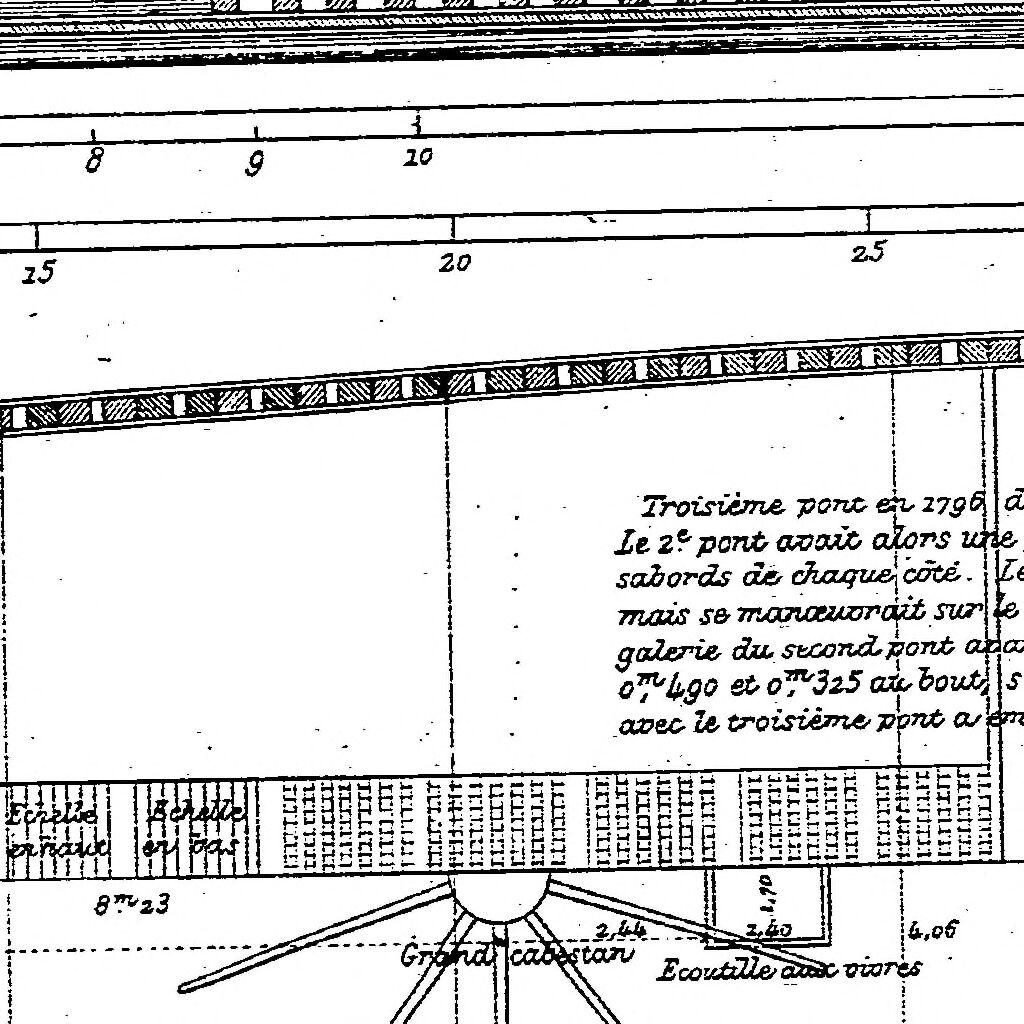 8 9 10
15 20 25
Troisième pont en 1796, d
Le 2e. pont avait alors une
sabords de chaque côté. Le
mais se manœuvrait sur le
galerie du second pont ava
0,m490 et 0,m325 au bout, s
avec le troisième pont a em
Echelle
en haut
Echelle
en bas
8m.23
1,70
2,44
2,40
4,06
Grand cabestan
Ecoutille aux vivres